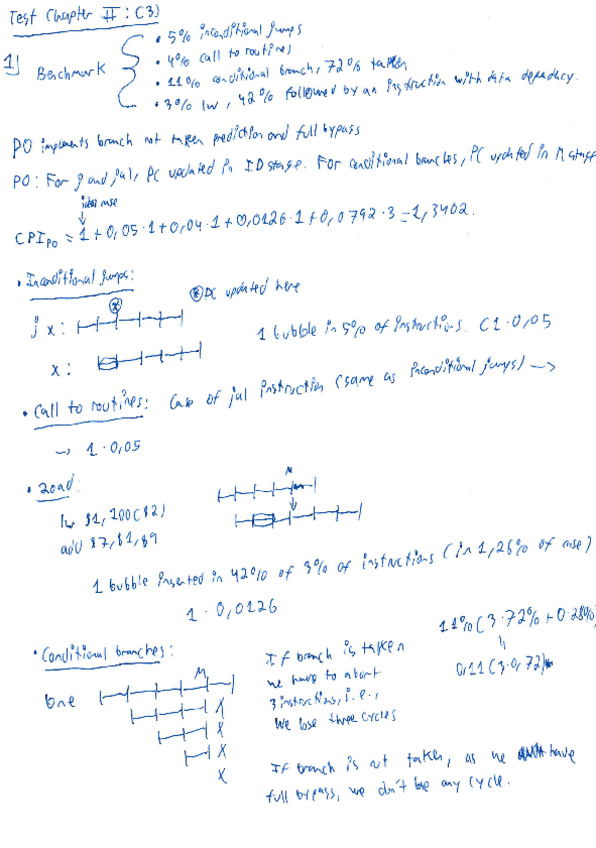 Test Chapter II: (3)
1) Benchmark
• 5% inconditional jumps
• 4% call to routines
• 11% conditional branch, 72% taken
• 3% lw, 42% followed by an instruction with data dependency.
PO implements branch not taken prediction and full bypass
PO: For j and jal, PC updated in ID stage. For conditional branches, PC updated in M stage
ideal case
CPI PO = 1 + 0,05 · 1 + 0,04 · 1 + 0,0126 · 1 + 0,0792 · 3 = 1,3402.
• Inconditional jumps:
* PC updated here
j x:
x:
1 bubble in 5% of instructions. (1 · 0,05
• Call to routines: Case of jal instruction (same as inconditional jumps) →
→ 1 · 0,05
• Load:
M
lw $1, 100($2)
add $7, $1, $9
1 bubble inserted in 42% of 3% of instructions (in 1,26% of case)
1 · 0,0126
• Conditional branches:
11% (3 · 72% + 0 · 28%)
0,11 (3 · 0,72)
M
bne
X
X
X
X
If branch is taken
we have to abort
3 instructions, i.e.,
we lose three cycles
If branch is not taken, as we have
full bypass, we don't lose any cycle.